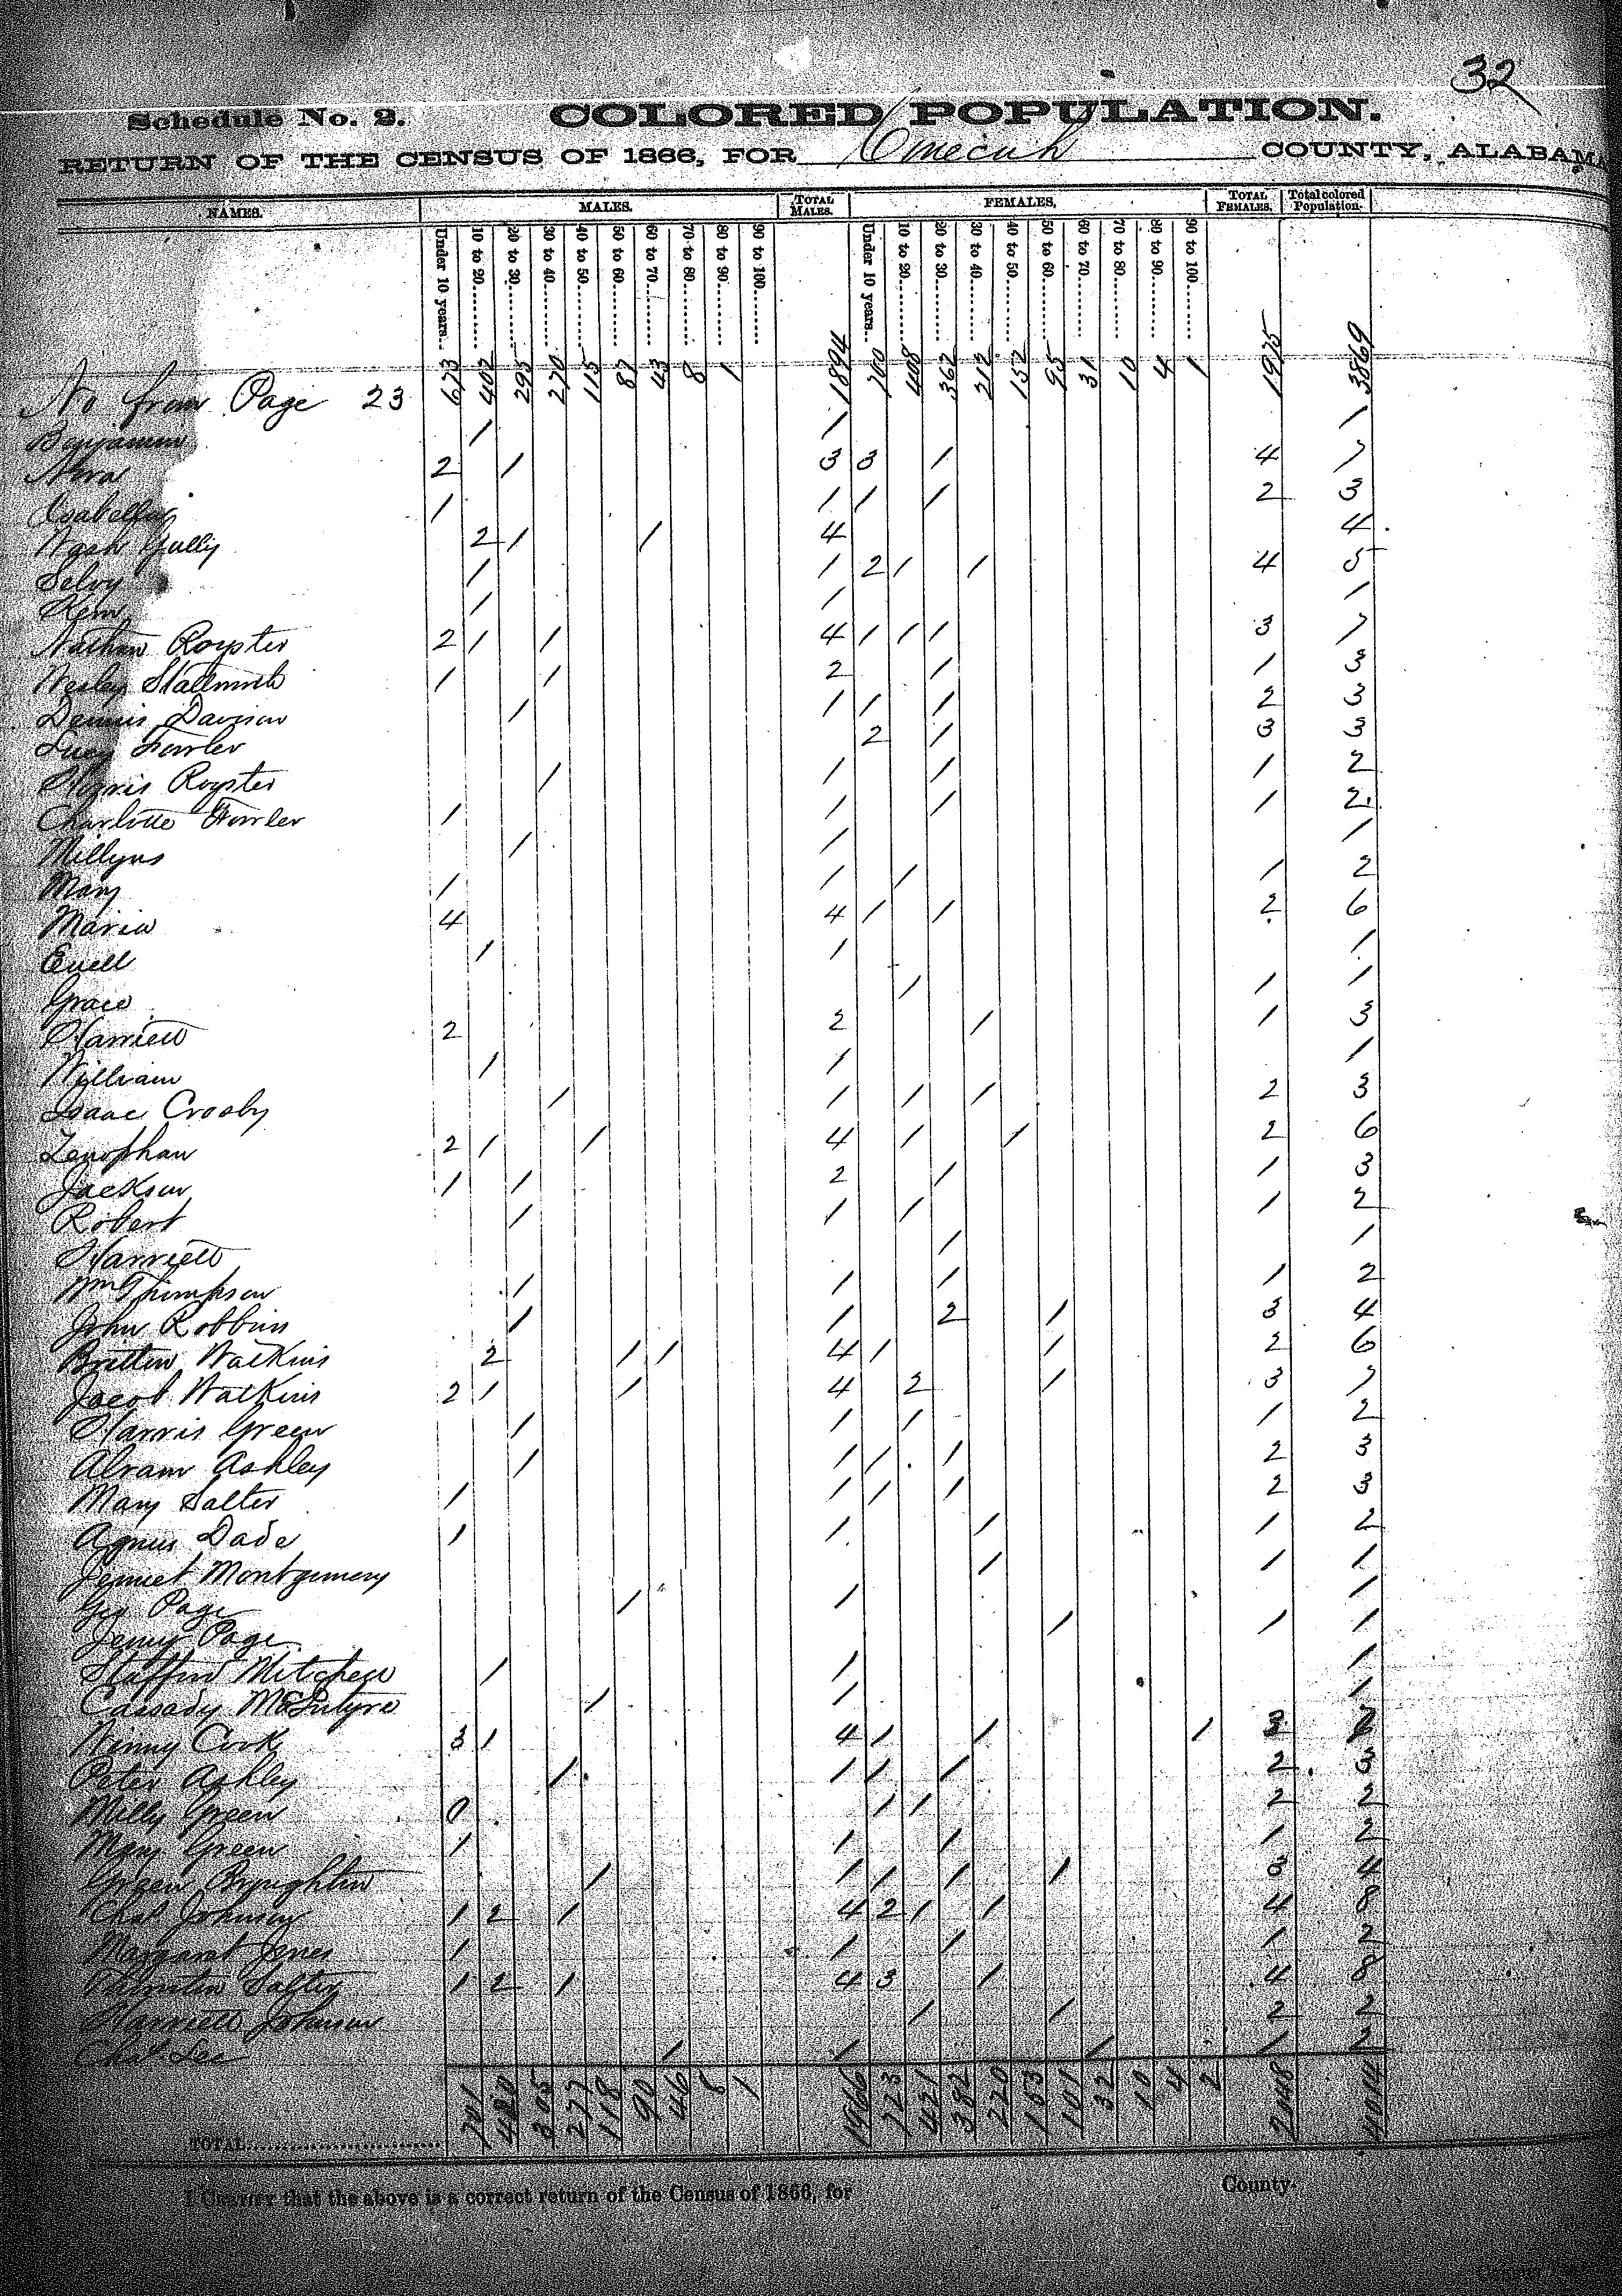 32
Schedule No. 2. COLORED POPULATION.
RETURN OF THE CENSUS OF 1866, FOR Conecuh COUNTY, ALABAMA
NAMES. MALES. TOTAL MALES. FEMALES. TOTAL FEMALES. Total colored Population.
Under 10 years. 10 to 20 20 to 30 30 to 40 40 to 50 50 to 60 60 to 70 70 to 80 80 to 90 90 to 100 Under 10 years. 10 to 20 20 to 30 30 to 40 40 to 50 50 to 60 60 to 70 70 to 80 80 to 90 90 to 100
No from Page 23 673 402 295 270 115 87 43 8 1 1894 700 408 362 212 152 95 31 10 4 1 1975 3869
Benjamin 1 1 1
2 1 3 3 1 4 7
Isabella 1 1 1 1 2 3
Wash Gully 2 1 1 4 4
Selvy 1 1 2 1 1 4 5
Kem 1 1 1
Nathan Royster 2 1 1 4 1 1 1 3 7
Wesley Stallworth 1 1 2 1 1 3
Dennis Davison 1 1 1 1 2 3
Lucy Fowler 2 1 3 3
Royster 1 1 1 1 2
Charlotte Fowler 1 1 1 1 2
Millyus 1 1 1
Mary 1 1 1 1 2
Maria 4 4 1 1 2 6
Euell 1 1 1
Grace 1 1 1
Harriett 2 2 1 1 3
William 1 1 1
Isaac Crosby 1 1 1 1 2 3
Zenophan 2 1 1 4 1 1 2 6
Jackson 1 1 2 1 1 3
Robert 1 1 1 1 2
Harriett 1 1
Wm Thompson 1 1 1 1 2
John Robbins 1 1 2 1 3 4
Britton Watkins 2 1 1 4 1 1 2 6
Jacob Watkins 2 1 1 4 2 1 3 7
Harris Green 1 1 1 1 2
Abram Ashley 1 1 1 1 2 3
Mary Salter 1 1 1 1 2 3
Agnus Dade 1 1 1 1 2
Jennet Montgomery 1 1 1
Geo Page 1 1 1
Jenny Page 1 1 1
Mitchell 1 1 1
Cassady McIntyre 1 1 1
Ninny Cook 3 1 4 1 1 1 3 7
Peter Ashley 1 1 1 1 2 3
Milly Green 0 1 1 2 2
Mary Green 1 1 1 1 2
Green Broughton 1 1 1 1 1 3 4
Chas Johnson 1 2 1 4 2 1 1 4 8
Margaret Jones 1 1 1 1 2
Thornton Salter 1 2 1 4 3 1 4 8
Harriett Johnson 1 1 2 2
Chas Lee 1 1 1 1 2
TOTAL 701 420 305 277 118 90 46 8 1 1966 723 421 382 220 153 101 32 10 4 2 2048 4014
I CERTIFY that the above is a correct return of the Census of 1866, for County.